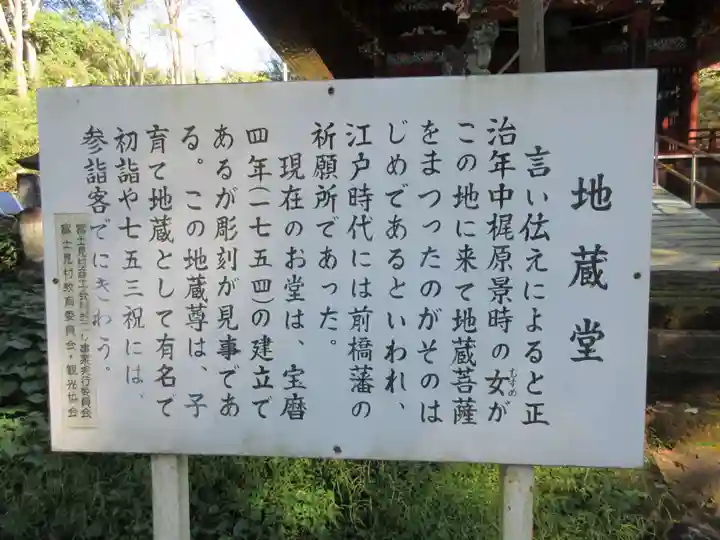 地蔵堂
言い伝えによると正
治年中梶原景時の女が
むすめ
この地に来て地蔵菩薩
をまつったのがそのは
じめであるといわれ、
江戸時代には前橋藩の
祈願所であった。
現在のお堂は、宝暦
四年(一七五四)の建立で
あるが彫刻が見事であ
る。この地蔵尊は、子
育て地蔵として有名で
初詣や七五三祝には、
参詣客でにぎわう。
富士見村教育委員会・観光協会